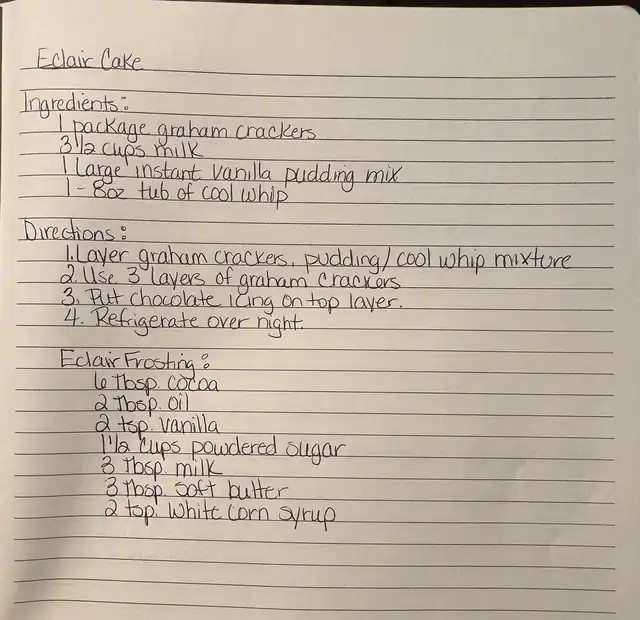 Eclair Cake
Ingredients:
1 package graham crackers
3 1/2 cups milk
1 Large instant vanilla pudding mix
1 - 8oz tub of cool whip
Directions:
1. Layer graham crackers, pudding/cool whip mixture
2. Use 3 layers of graham crackers
3. Put chocolate icing on top layer.
4. Refrigerate over night.
Eclair Frosting:
6 Tbsp. cocoa
2 Tbsp. oil
2 tsp. vanilla
1 1/2 cups powdered sugar
3 Tbsp. milk
3 Tbsp. soft butter
2 tsp. white corn syrup